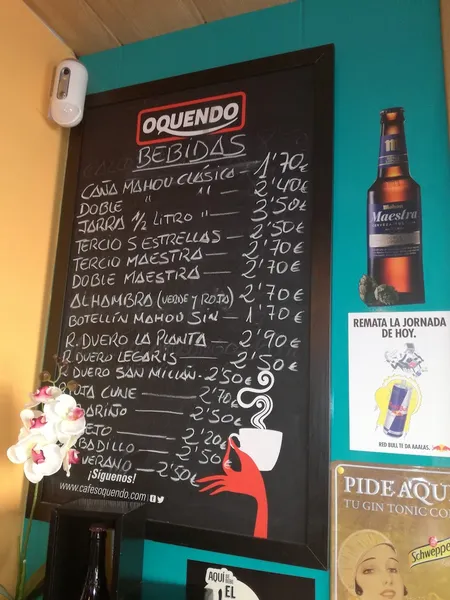 OQUENDO
BEBIDAS
CAÑA MAHOU CLASICA - 1'70€
DOBLE " " - 2'40€
JARRA 1/2 LITRO " - 3'50€
TERCIO 5 ESTRELLAS - 2'50€
TERCIO MAESTRA - 2'70€
DOBLE MAESTRA - 2'70€
ALHAMBRA (VERDE Y ROJA) 2'70€
BOTELLÍN MAHOU SIN - 1'70€
R. DUERO LA PLANTA - 2'90€
R. DUERO LEGARIS - 2'50€
R DUERO SAN MILLÁN - 2'50€
RIOJA CUNE - 2'70€
ARIÑO - 2'50€
ETO - 2'20€
BADILLO - 2'50€
VERANO - 2'50€
¡Síguenos!
www.cafesoquendo.com
Mahou
Maestra
REMATA LA JORNADA
DE HOY.
RED BULL TE DA AAALAS.
PIDE AQU
TU GIN TONIC CO
Schweppe
AQUÍ
EL